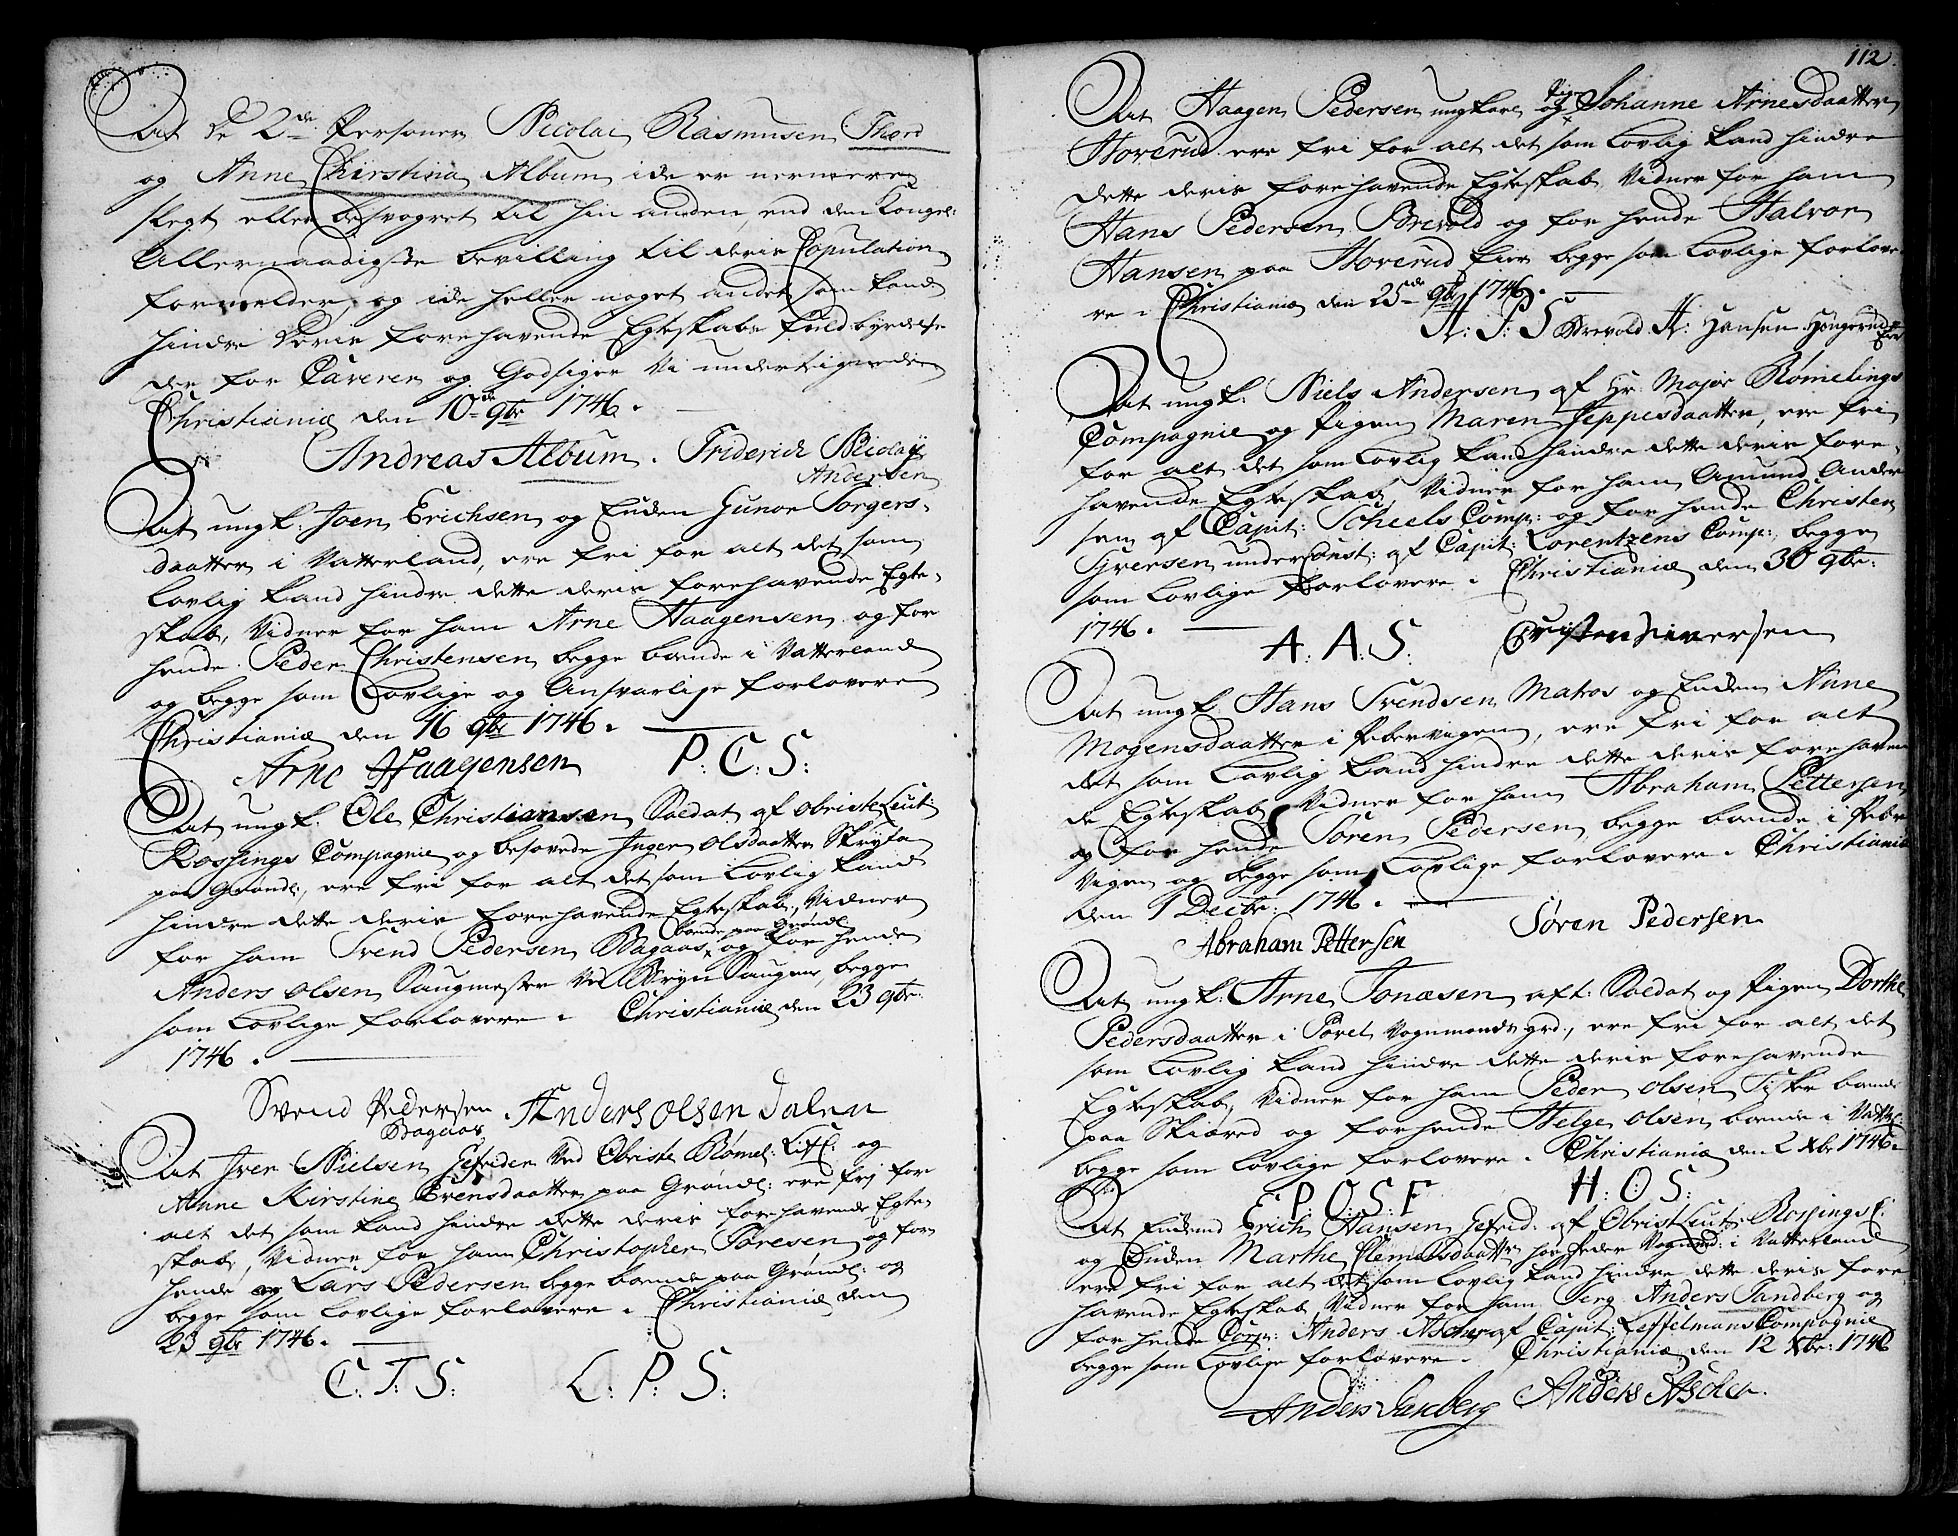 At de 2de Personer Nicolai Rasmusen Thord
og Anne Chirstina Album ide er nermere
slegt eller besvogret til hin anden, end den Kongel:
Allernaadigste bevilling til deris Copulation
formelder, og ide heller noget andet som kand
hindre deris forehavende Egteskabs fuldbyrdelse
der for Caverer og Godsiger Vi undertegnede
Christiania den 10de 9br 1746.
Andreas Album. Friderich Nicolaÿ
Andersen
At ungk: Joen Erichsen og Enken Gunor Torgers-
daatter i Vatterland, ere fri for alt det som
lovlig kand hindre dette deris forehavende Egte-
skab, Vidner for ham Arne Haagensen og for
hende Peder Christensen begge boende i Vatterland
og begge som lovlige og Ansvarlige forlovere
Christiania den 16 9br 1746.
Arne Haagensen P: C: S:
At ungk: Ole Christiansen Soldat af Obriste Leut:
Rossings Compagnie og besovede Inger Olsdaatter Skryta
paa Grønl:, ere fri for alt det som lovlig kand
hindre dette deris forehavende Egteskab, Vidner
for ham Svend Pedersen Bagaas boende paa Grønl: og for hende
Anders Olsen Saugmester ved Bryn Saugene, begge
som lovlige forlovere. Christiania den 23 9br:
1746.
Svend Pedersen Anders Olsen Dalen
Bagaas
At Iver Nielsen Gefreider Ved Obriste Rømel: og
Anne Kirstine Svensdaatter paa Grønl: ere frj for
alt det som kand hindre dette deris forehavende Egte-
skab, Vidner for ham Christopher Toresen og for
hende Lars Pedersen begge boende paa Grønl: og
begge som lovlige forlovere. Christiania den
23 9br 1746.
C: T: S: L: P: S:
112
At Haagen Pedersen ungkarl og Pigen Johanne Arnesdaatter
Hoverud ere fri for alt det som lovlig kand hindre
dette deris forehavende Egteskab Vidner for ham
Hans Pedersen Brevold og for hende Halvor
Hansen paa Hoverud Eier begge som lovlige forlove
re. Christiania den 25de 9br 1746.
H: P: S Brevold H: Hansen
At ungk: Niels Andersen af Hr: Major Rømelings
Compagnie og Pigen Maren Jeppesdaatter, ere fri
for alt det som lovlig kand hindre dette deris fore-
havende Egteskab, Vidner for ham Amund Ander
sen af Capit: Scheels Comp: og for hende Christen
Syversen underConst: af Capit: Lorentzens Comp:, begge
som lovlige forlovere. Christiania den 30 9br:
1746.
A: A: S: Christen Siversen
At ungk: Hans Svendsen Matros og Enken Anne
Mogensdaatter i Pebervigen, ere fri for alt
det som lovlig kand hindre dette deris forehaven
de Egteskab, Vidner for ham Abraham Pettersen
og for hende Søren Pedersen, begge boende i Peber
Vigen og begge som lovlige forlovere. Christiania
den 1 Decbr: 1746.
Abraham Pettersen Søren Pedersen
At ungk: Arne Jonæsen aft: Soldat og Pigen Dorthe
Pedersdaatter i Povel Vognmands grd:, ere fri for alt det
som lovlig kand hindre dette deris forehavende
Egteskab, Vidner for ham Peder Olsen Fisker boende
paa Skiøred og for hende Helge Olsen boende i Vatterl:
begge som lovlige forlovere. Christiania den 2 Xbr 1746.
P. O. S. F H: O: S:
At Enkemd Erich Hansen Gefrid: af Obrist Leut: Rossings C:
og Enken Marthe Clemetsdaatter hos Peder Vognmd: i Vatterland
ere fri for alt det som lovlig kand hindre dette deris fore
havende Egteskab, Vidner for ham Serg: Anders Sandberg og
for hende Corp: Anders Ascher af Capit: Zeffelmans Compagnie
begge som lovlige forlovere. Christiania den 12 Xbr: 1746
Anders Sanberg Anders Ascher.